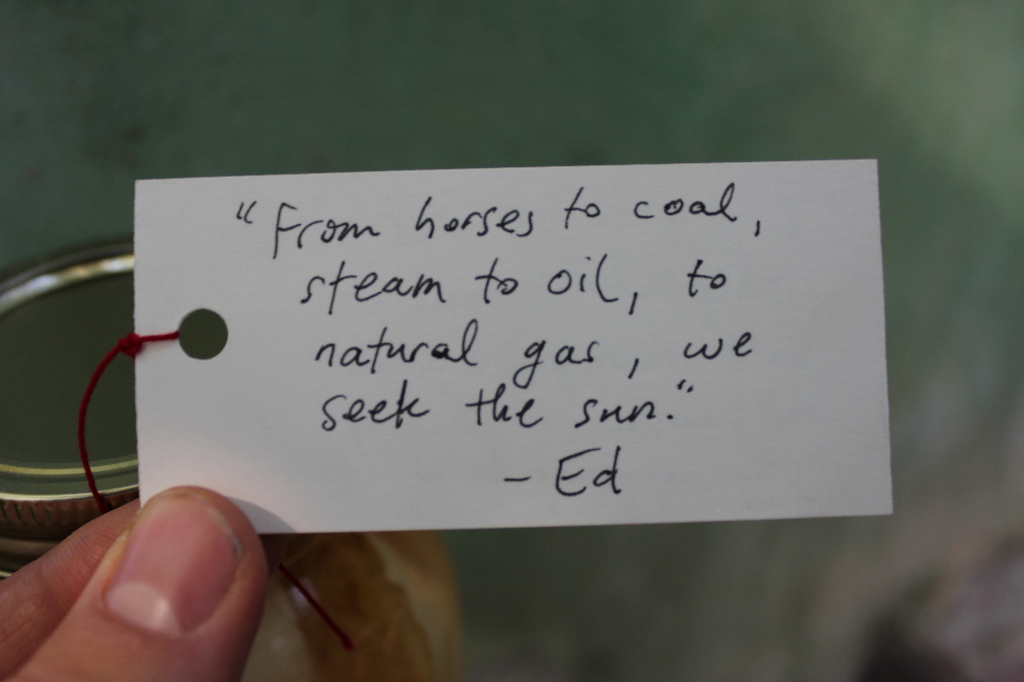 "From horses to coal,
steam to oil, to
natural gas, we
seek the sun."
- Ed